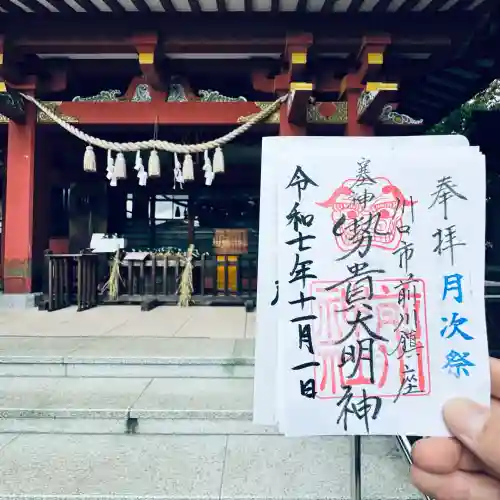 奉拝
月次祭
川口市前川鎮座
塞神
勢貴大明神
令和七年十一月一日